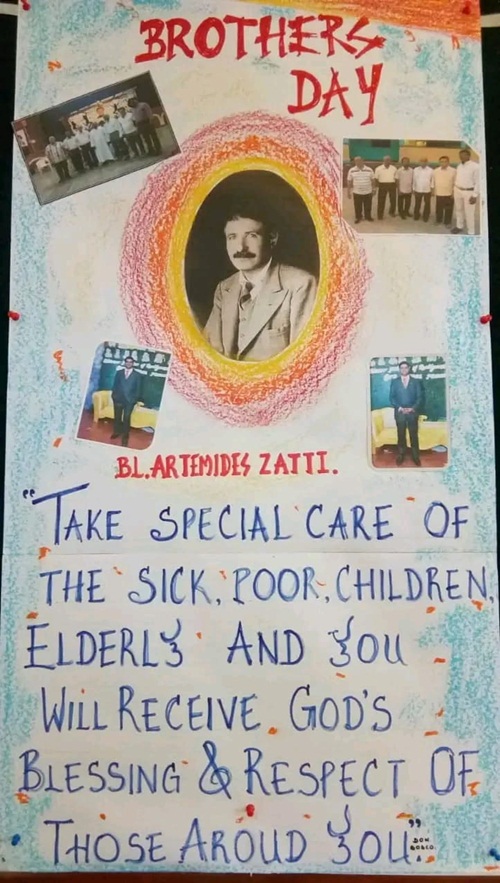 BROTHERS
DAY
BL. ARTEMIDES ZATTI.
"TAKE SPECIAL CARE OF
THE SICK, POOR, CHILDREN,
ELDERLY AND YOU
WILL RECEIVE GOD'S
BLESSING & RESPECT OF
THOSE AROUD YOU"
DON
BOSCO